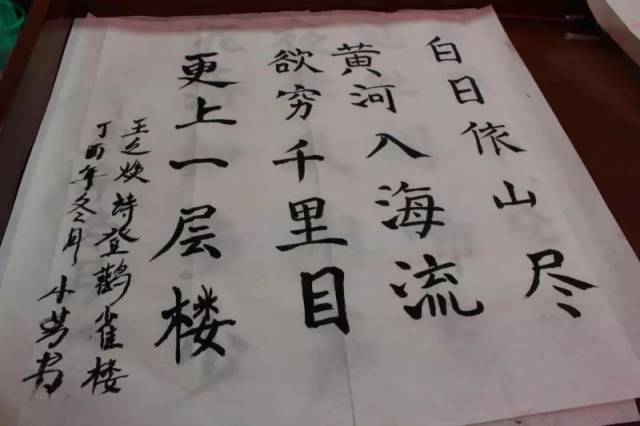 白日依山尽
黄河入海流
欲穷千里目
更上一层楼
王之焕詩登鹳雀楼
丁酉年冬月 小芳书